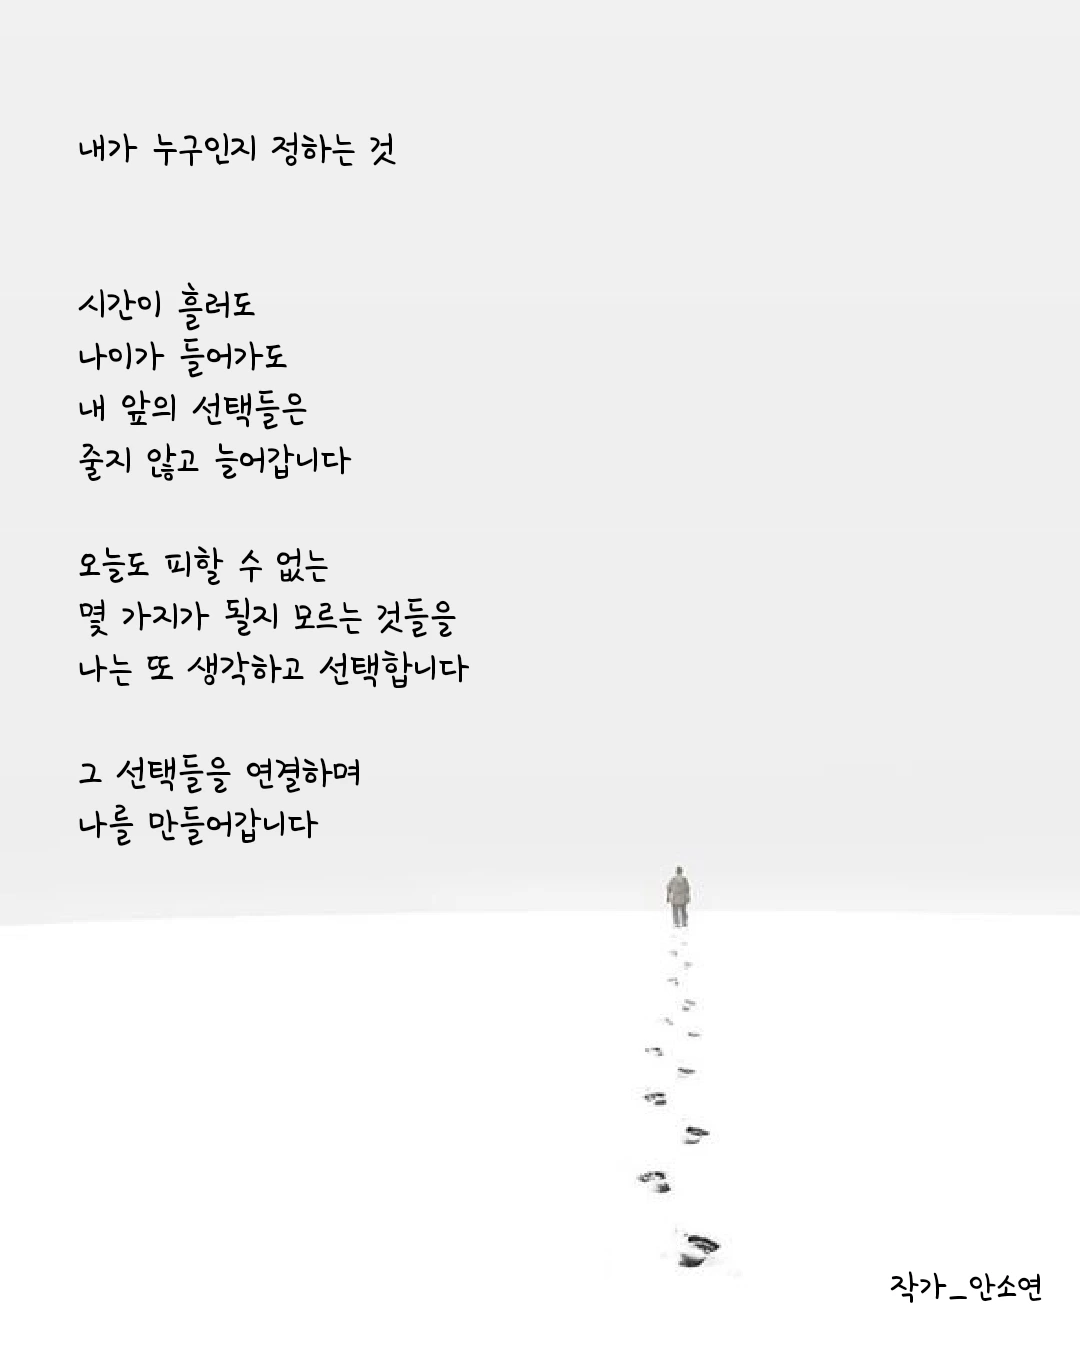 내가 누구인지 정하는 것
시간이 흘러도
나이가 들어가도
내 앞의 선택들은
줄지 않고 늘어갑니다
오늘도 피할 수 없는
몇 가지가 될지 모르는 것들을
나는 또 생각하고 선택합니다
그 선택들을 연결하며
나를 만들어갑니다
작가_안소연